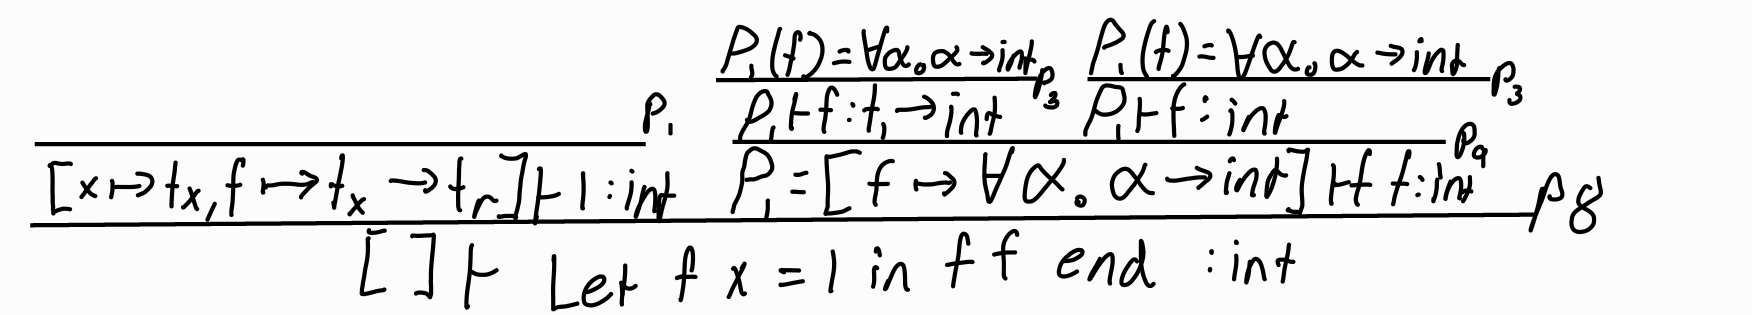 P₁(f)=∀α.α→int P₁(f)=∀α.α→int
p₃ p₃
P₁⊢f:t₁→int P₁⊢f:int
p₁ p₉
[x↦tₓ,f↦tₓ→tᵣ]⊢1:int P₁=[f↦∀α.α→int]⊢f f:int
p8
[]⊢Let f x = 1 in f f end :int